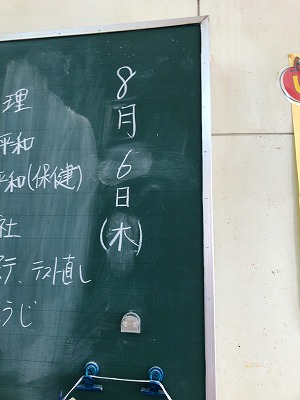 8月6日(木)
理
平和
平和(保健)
社
テスト直し
うじ